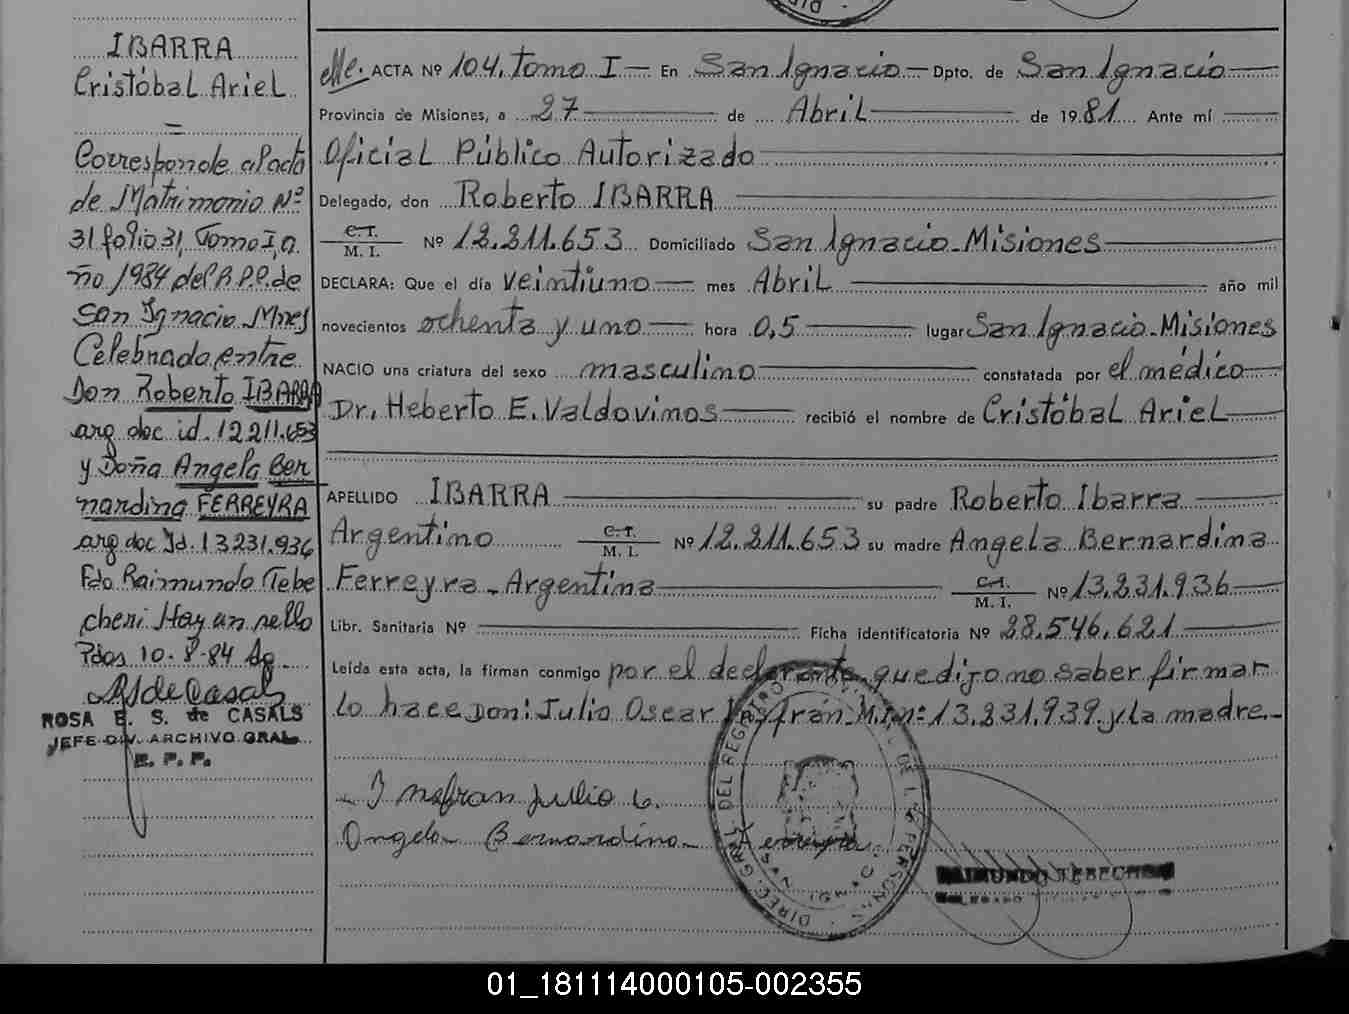 IBARRA
Cristóbal Ariel
Corresponde al acta
de Matrimonio Nº
31 folio 31, Tomo I, a
ño 1984 del R.P.P. de
San Ignacio Mnes
Celebrado entre
Don Roberto IBARRA
arg doc id. 12211.653
y Doña Angela Ber
nardina FERREYRA
arg doc Id. 13231.936
Fdo Raimundo Tebe
cheri Hay un sello
Pdas 10-8-84
ROSA E. S. de CASALS
JEFE DIV. ARCHIVO GRAL.
E. P. P.
ACTA Nº 104. Tomo I - En San Ignacio - Dpto. de San Ignacio
Provincia de Misiones, a 27 de Abril de 1981. Ante mí
Oficial Público Autorizado
Delegado, don Roberto IBARRA
C.I.
M. I. Nº 12.211.653 Domiciliado San Ignacio - Misiones
DECLARA: Que el día veintiuno mes Abril año mil
novecientos ochenta y uno hora 0,5 lugar San Ignacio - Misiones
NACIO una criatura del sexo masculino constatada por el médico
Dr. Heberto E. Valdovinos recibió el nombre de Cristóbal Ariel
APELLIDO IBARRA su padre Roberto Ibarra
Argentino C.I.
M. I. Nº 12.211.653 su madre Angela Bernardina
Ferreyra - Argentina C.I.
M. I. Nº 13.231.936
Libr. Sanitaria Nº Ficha identificatoria Nº 28.546.621
Leída esta acta, la firman conmigo por el declarante, que dijo no saber firmar
lo hace Don: Julio Oscar Insfrán M.I.nº: 13.231.939. y la madre.-
Insfran Julio O.
Angela Bernardina Ferreyra
DIREC. GRAL. DEL REGISTRO PROVINCIAL DE LAS PERSONAS
SAN IGNACIO
RAIMUNDO TEBECHERI
DELEGADO
01_181114000105-002355